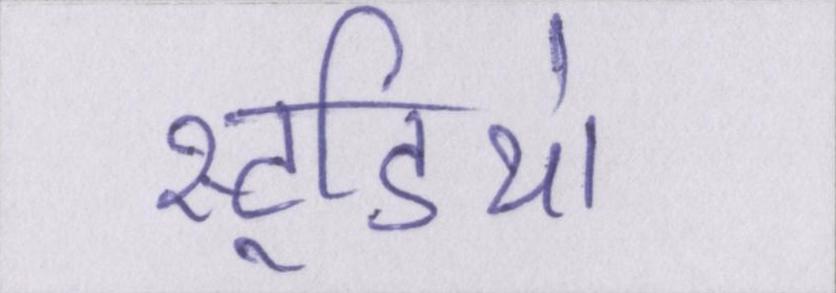 स्टूडियो